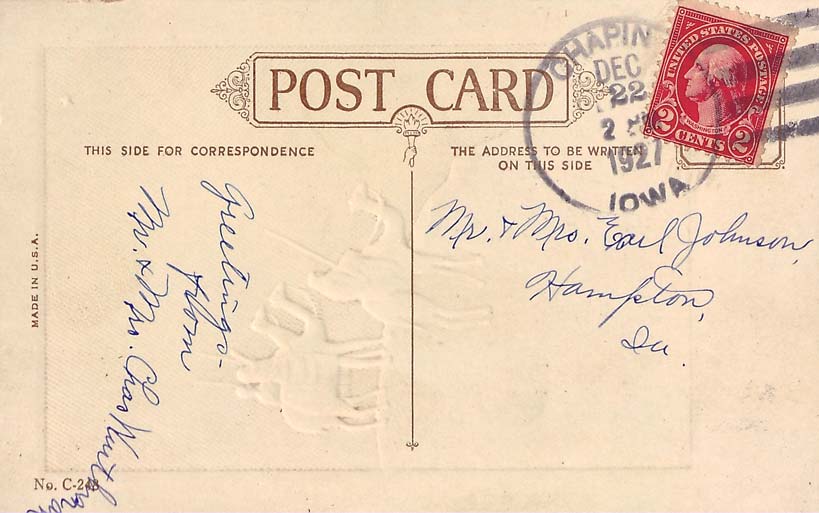 POST CARD
THIS SIDE FOR CORRESPONDENCE
THE ADDRESS TO BE WRITTEN
ON THIS SIDE
CHAPIN
DEC
22
2
1927
IOWA
UNITED STATES POSTAGE
WASHINGTON
2 CENTS 2
Greetings-
from
Mr. & Mrs. Chas
Mr. & Mrs. Earl Johnson,
Hampton,
Ia.
MADE IN U.S.A.
No. C-248